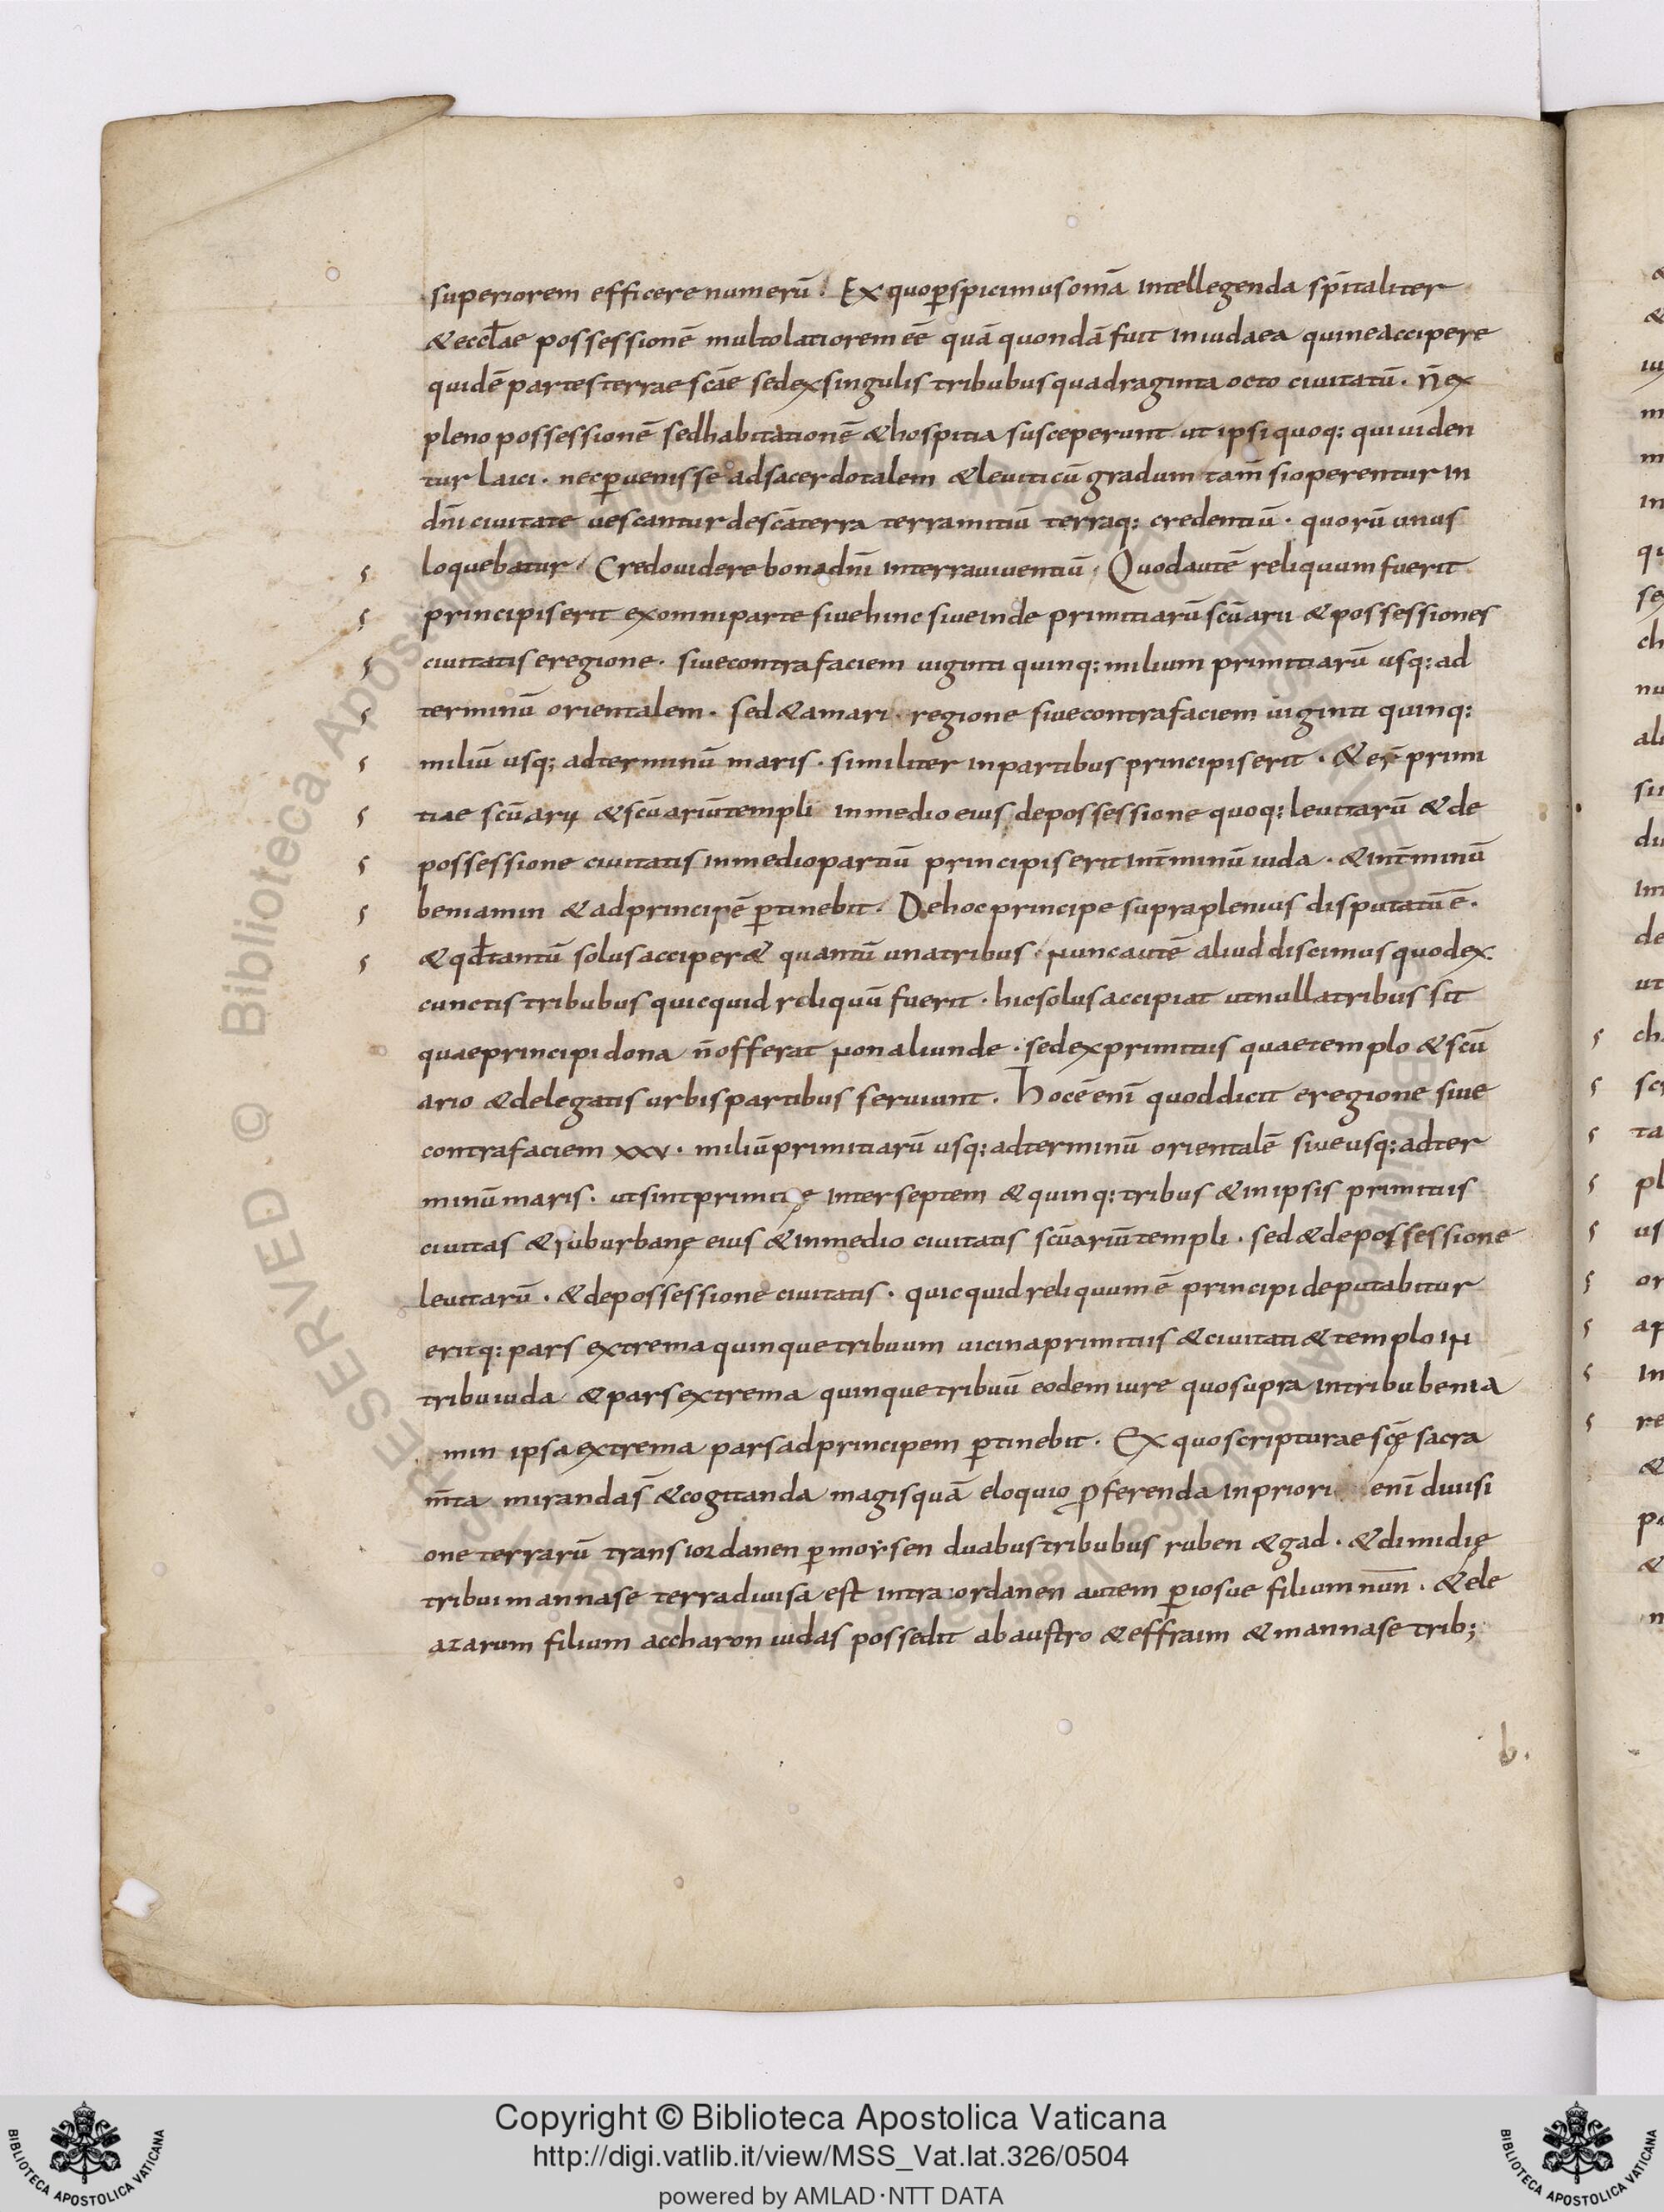 superiorem efficere numerū. Ex quo ꝑspicimus omā intellegenda sp̄italiter
& eccłae possessionē multo latiorem eē quā quondā fuit in iudaea qui ne accipere
quidē partes terrae sc̄ae sed ex singulis tribubus quadraginta octo ciuitatū. n̄ ex
pleno possessionē sed habitationē & hospitia susceperunt ut ipsi quoq: qui uiden
tur laici. nec ꝑuenisse ad sacerdotalem & leuiticū gradum tam̄ si operentur in
dn̄i ciuitate uescantur de sc̄a terra terra mitiū terraq: credentiū. quorū unus
loquebatur. Credo uidere bona dn̄i in terra uiuentiū. Quod autē reliquum fuerit
principis erit ex omni parte siue hinc siue inde primitiarū sc̄uarii & possessiones
ciuitatis e regione. siue contra faciem uiginti quinq: milium primitiarū usq: ad
terminū orientalem. sed & a mari regione siue contra faciem uiginti quinq:
miliū usq: ad terminū maris. similiter in partibus principis erit. & er̄ primi
tiae sc̄uarii & sc̄uariū templi in medio eius de possessione quoq: leuitarū & de
possessione ciuitatis in medio partiū principis erit in t̄minū iuda. & in t̄minū
beniamin & ad principē ꝑtinebit. De hoc principe supra plenius disputatū ē.
& qđ tantū solus acciper& quantū una tribus. Nunc autē aliud discimus quod ex
cunctis tribubus quicquid reliquū fuerit. hic solus accipiat ut nulla tribus sit
quae principi dona n̄ offerat Non aliunde. sed ex primitiis quae templo & sc̄u
ario & delegatis urbis partibus seruiunt. Hoc ē eni quod dicit e regione siue
contra faciem xxv. miliū primitiarū usq: ad terminū orientalē siue usq: ad ter
minū maris. ut sint primitię inter septem & quinq: tribus & in ipsis primitiis
ciuitas & suburbanę eius & in medio ciuitatis sc̄uariū templi. sed & de possessione
leuitarū. & de possessione ciuitatis. quicquid reliquum ē principi deputabitur
eritq: pars extrema quinque tribuum uicina primitiis & ciuitati & templo iN
tribu iuda & pars extrema quinque tribuū eodem iure quo supra in tribu benia
min ipsa extrema pars ad principem ꝑtinebit. Ex quo scripturae sc̄ę sacra
m̄ta miranda s̄ & cogitanda magis quā eloquio ꝓferenda in priori enī diuisi
one terrarū trans iordanen ꝑ moysen duabus tribubus ruben & gad. & dimidię
tribui mannase terra diuisa est intra iordanen autem ꝑ iosue filium nun. & ele
azarum filium accharon iudas possedit ab austro & effraim & mannase trib;
b.
Copyright © Biblioteca Apostolica Vaticana
http://digi.vatlib.it/view/MSS_Vat.lat.326/0504
powered by AMLAD·NTT DATA